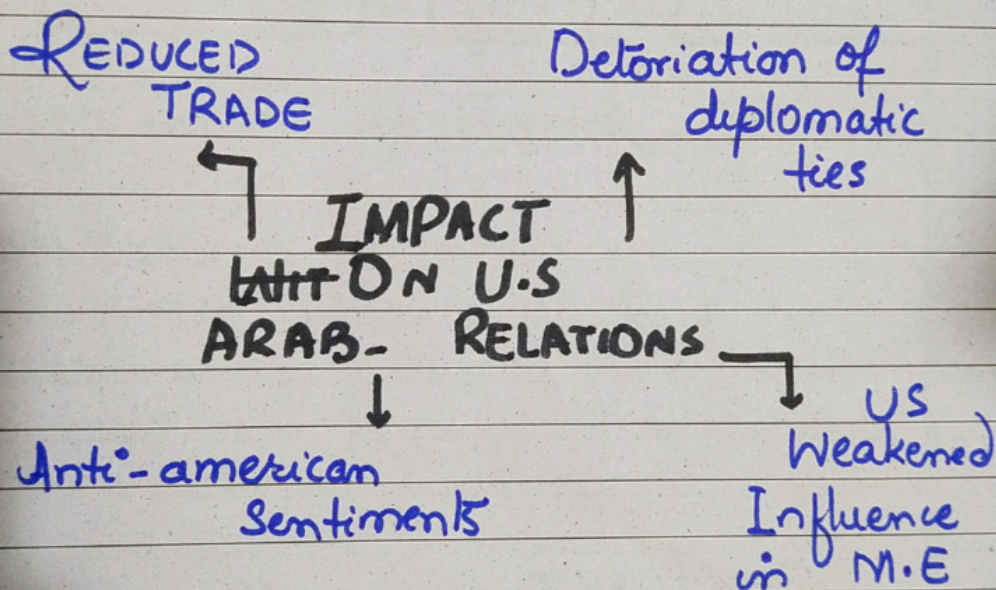 REDUCED
TRADE
Detoriation of
diplomatic
ties
IMPACT
ON U.S
ARAB- RELATIONS
Anti-american
Sentiments
US
Weakened
Influence
in M.E